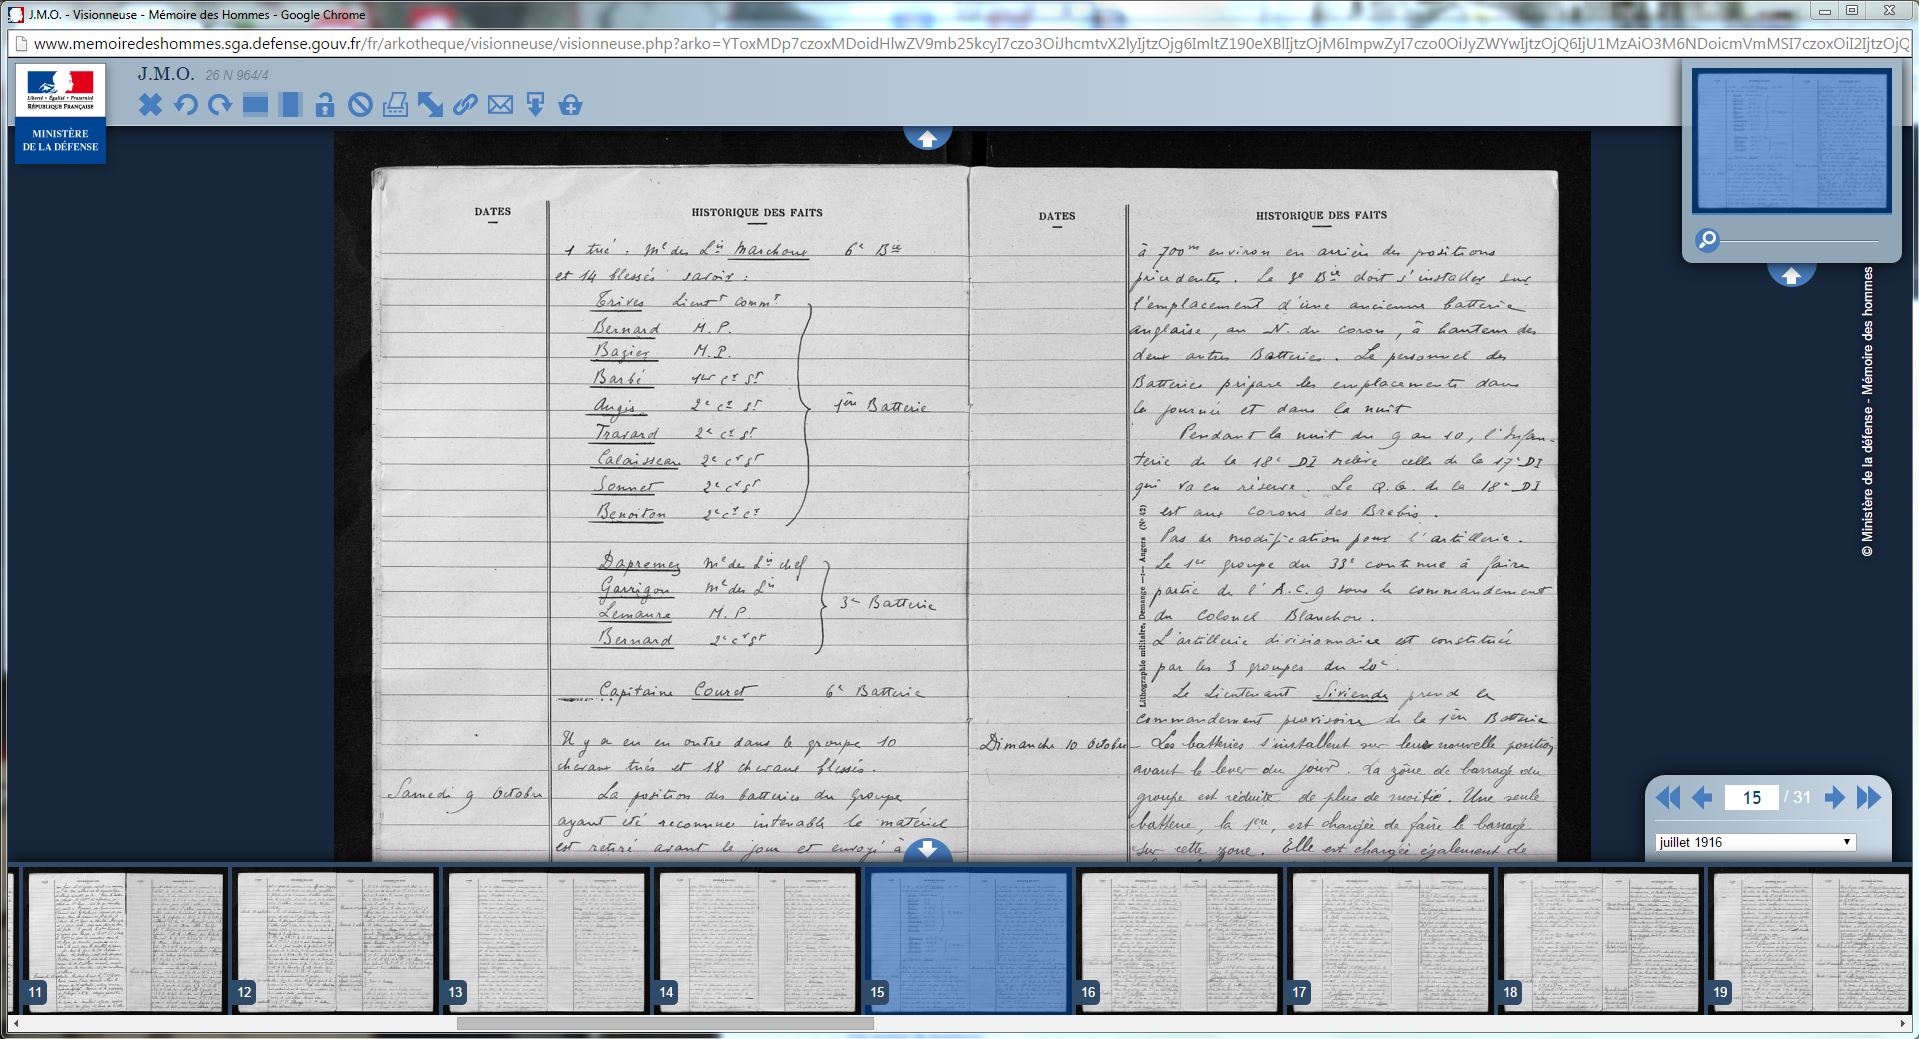 J.M.O. - Visionneuse - Mémoire des Hommes - Google Chrome
www.memoiredeshommes.sga.defense.gouv.fr/fr/arkotheque/visionneuse/visionneuse.php?arko=
J.M.O. 26 N 964/4
Liberté • Égalité • Fraternité
RÉPUBLIQUE FRANÇAISE
MINISTÈRE
DE LA DÉFENSE
DATES
HISTORIQUE DES FAITS
1 tué : Mal des Lis Marchoux 6e Bie
et 14 blessés savoir :
Trives Lieutt Commt
Bernard M.P.
Bazier M.P.
Barbé 1er cr St
Augis 2e cr St
Travard 2e cr St
Calaisseau 2e cr St
Sonnet 2e cr St
Benoiton 2e cr cr
1ère Batterie
Dapremez Mal des Lis chef
Garrigou Mal des Lis
Lemaure M.P.
Bernard 2e cr St
3e Batterie
Capitaine Couret 6e Batterie
Il y a eu en outre dans le groupe 10
chevaux tués et 18 chevaux blessés.
Samedi 9 Octobre La position des batteries du Groupe
ayant été reconnue intenable le matériel
est retiré avant le jour et envoyé à
DATES
HISTORIQUE DES FAITS
à 700m environ en arrière des positions
précédentes. La 3e Bie doit s'installer sur
l'emplacement d'une ancienne batterie
anglaise, au N. du coron, à hauteur des
deux autres Batteries. Le personnel des
Batteries prépare les emplacements dans
la journée et dans la nuit
Pendant la nuit du 9 au 10, l'Infan-
terie de la 18e DI relève celle de la 17e DI
qui va en réserve. Le Q.G. de la 18e DI
est aux corons des Brebis.
Pas de modification pour l'artillerie.
Le 1er groupe du 33e continue à faire
partie de l'A.C.9 sous le commandement
du Colonel Blanchon.
L'artillerie divisionnaire est constituée
par les 3 groupes du 20e.
Le Lieutenant prend le
commandement provisoire de la 1ère Batterie
Dimanche 10 Octobre - Les batteries s'installent sur leur nouvelle position
avant le lever du jour. La zône de barrage du
groupe est réduite de plus de moitié. Une seule
batterie, la 1ère, est chargée de faire le barrage
sur cette zone. Elle est chargée également de
Lithographie militaire, Demange — Angers (No 42)
© Ministère de la défense - Mémoire des hommes
15 / 31
juillet 1916
11
12
13
14
15
16
17
18
19